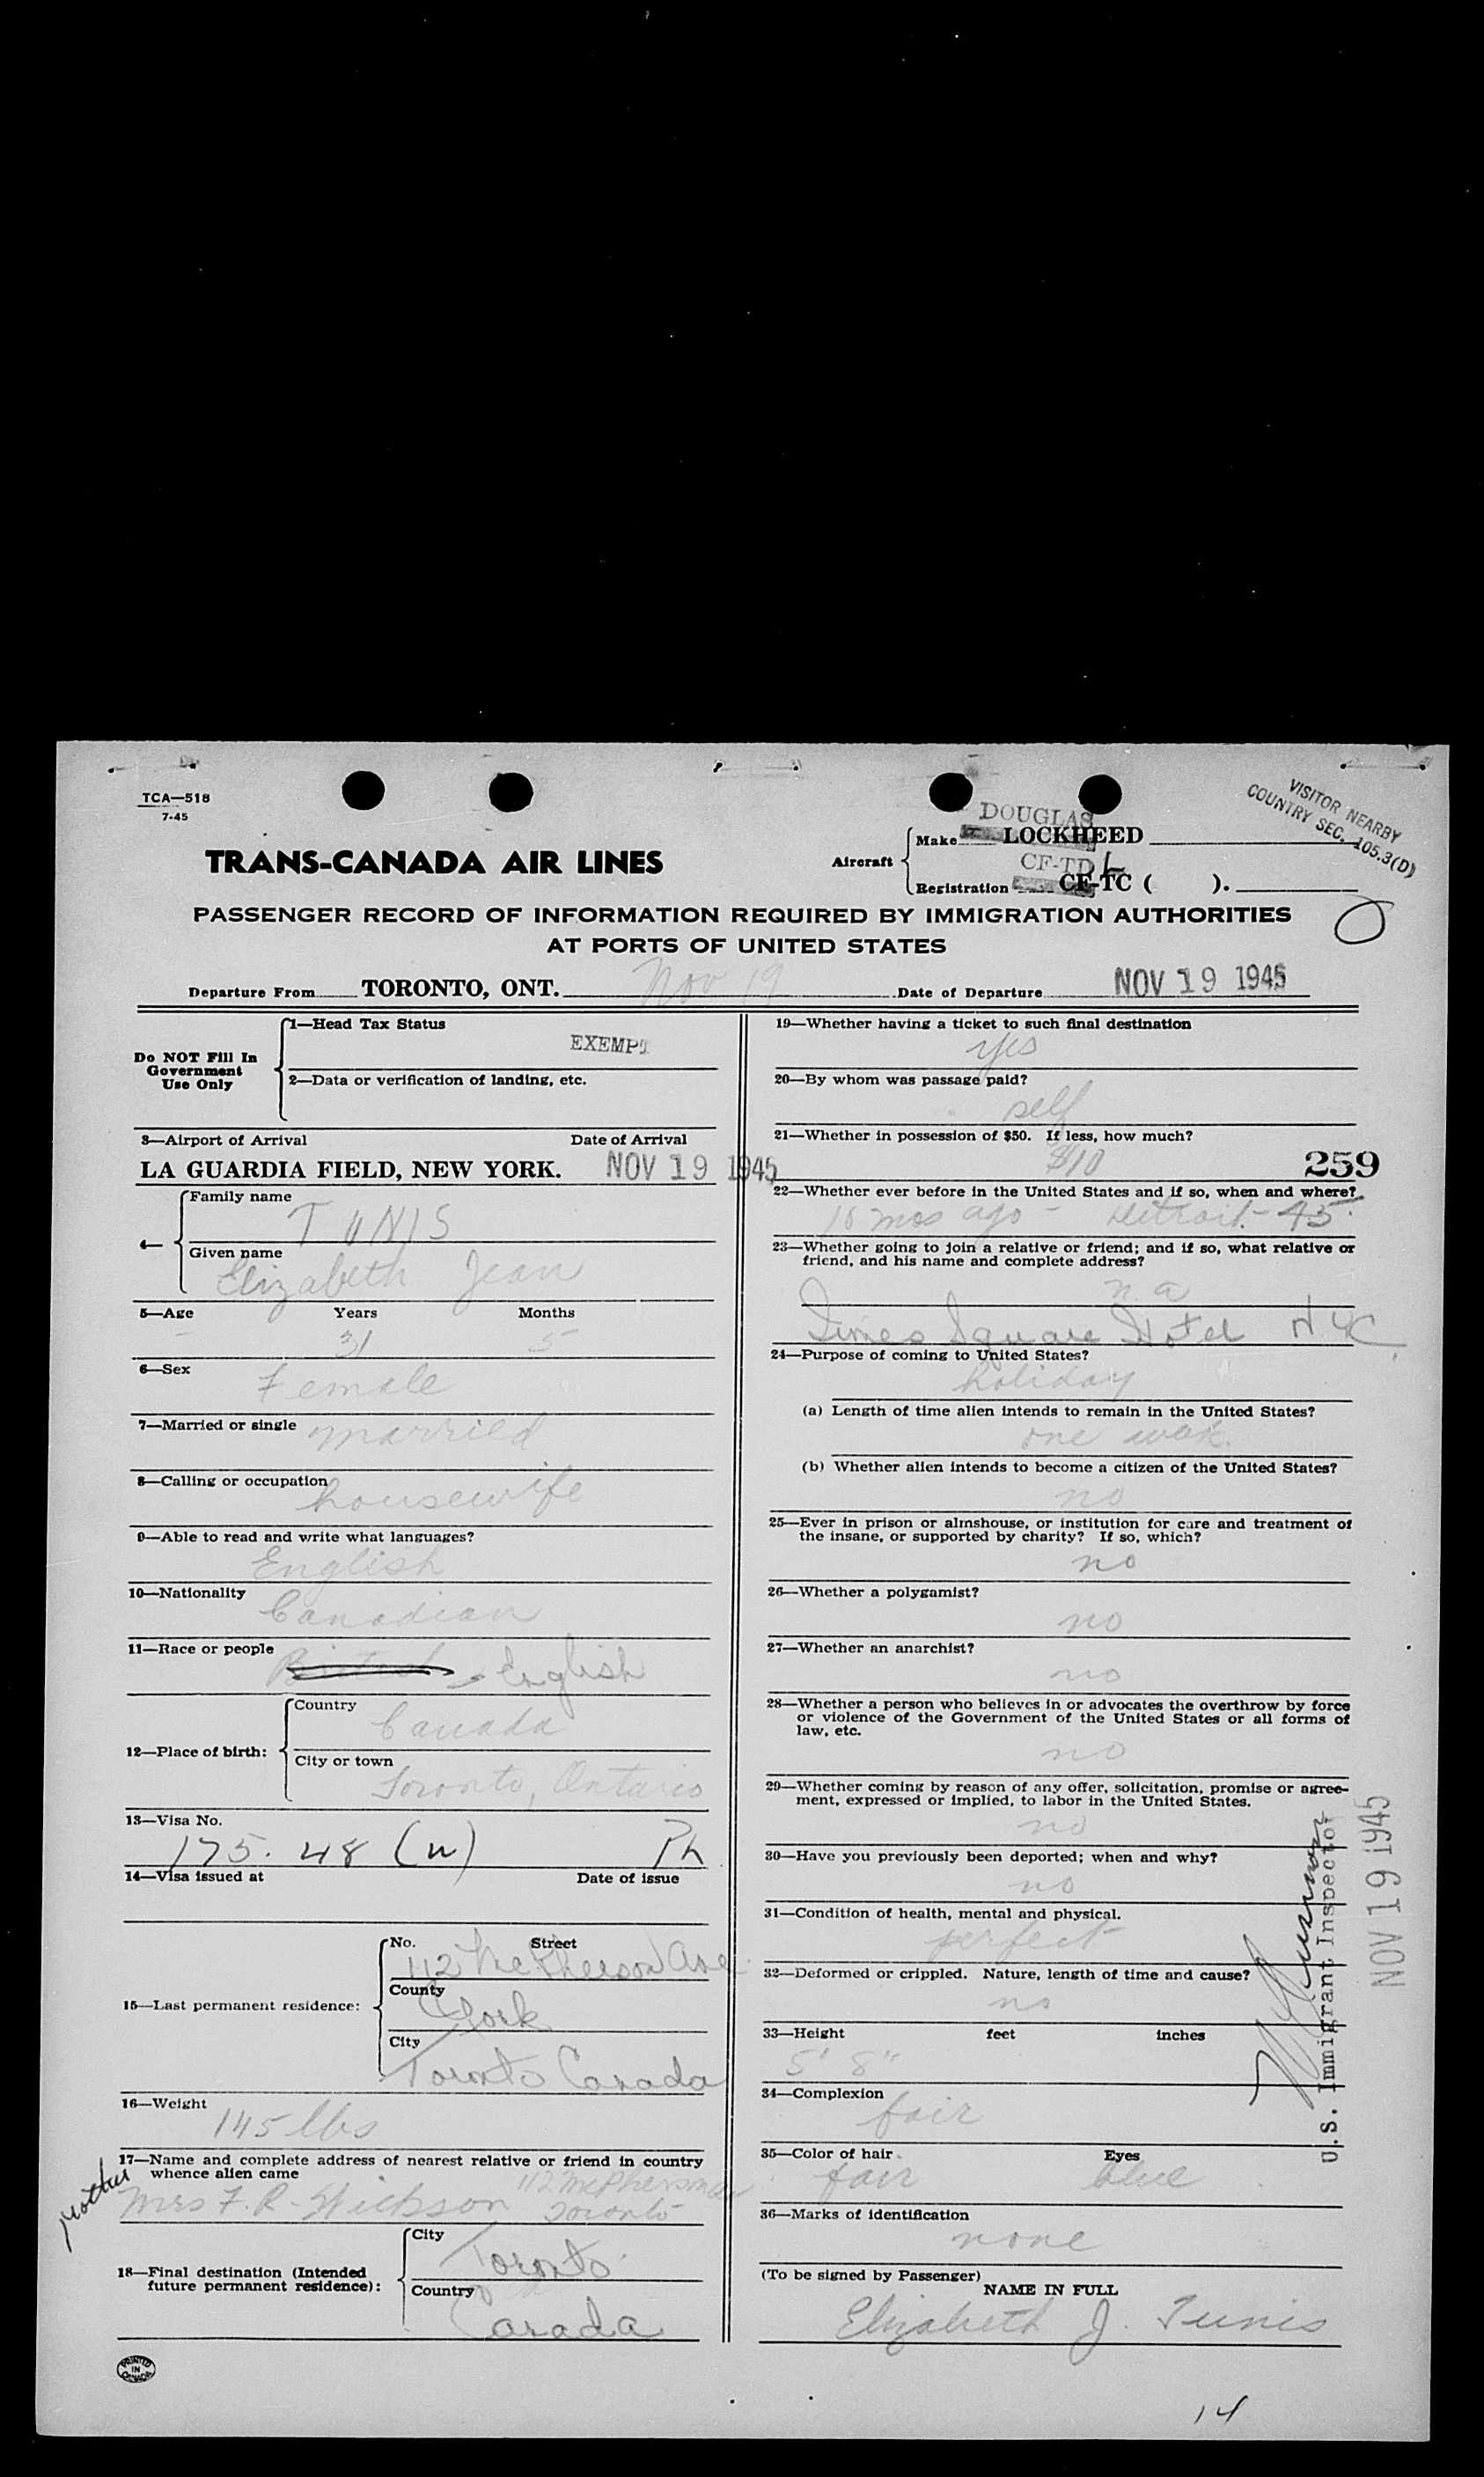 TCA—518
7-45
VISITOR NEARBY
COUNTRY SEC. 105.3(D)
TRANS-CANADA AIR LINES
Aircraft
DOUGLAS
Make LOCKHEED
CF-TD L
Registration CF-TC ( ).
PASSENGER RECORD OF INFORMATION REQUIRED BY IMMIGRATION AUTHORITIES
AT PORTS OF UNITED STATES
Departure From TORONTO, ONT. Nov 19 Date of Departure NOV 19 1945
Do NOT Fill In
Government
Use Only
1—Head Tax Status
EXEMPT
2—Data or verification of landing, etc.
3—Airport of Arrival Date of Arrival
LA GUARDIA FIELD, NEW YORK. NOV 19 1945
4—
Family name
TUNIS
Given name
Elizabeth Jean
5—Age Years Months
31 5
6—Sex
Female
7—Married or single married
8—Calling or occupation
housewife
9—Able to read and write what languages?
English
10—Nationality
Canadian
11—Race or people
British - English
12—Place of birth:
Country
Canada
City or town
Toronto, Ontario
13—Visa No.
175.48 (w) Ph
14—Visa issued at Date of issue
15—Last permanent residence:
No. Street
112 McPherson Ave
County
York
City
Toronto Canada
16—Weight
145 lbs
17—Name and complete address of nearest relative or friend in country
whence alien came
mother
Mrs F. R. Wickson 112 McPherson
Toronto
18—Final destination (Intended
future permanent residence):
City
Toronto
Country
Canada
PRINTED
IN
CANADA
19—Whether having a ticket to such final destination
yes
20—By whom was passage paid?
self
21—Whether in possession of $50. If less, how much?
$10
259
22—Whether ever before in the United States and if so, when and where?
mos ago - Detroit - 45
23—Whether going to join a relative or friend; and if so, what relative or
friend, and his name and complete address?
n.a
Times Square Hotel NYC
24—Purpose of coming to United States?
holiday
(a) Length of time alien intends to remain in the United States?
one week
(b) Whether alien intends to become a citizen of the United States?
no
25—Ever in prison or almshouse, or institution for care and treatment of
the insane, or supported by charity? If so, which?
no
26—Whether a polygamist?
no
27—Whether an anarchist?
no
28—Whether a person who believes in or advocates the overthrow by force
or violence of the Government of the United States or all forms of
law, etc.
no
29—Whether coming by reason of any offer, solicitation, promise or agree-
ment, expressed or implied, to labor in the United States.
no
30—Have you previously been deported; when and why?
no
31—Condition of health, mental and physical.
perfect
32—Deformed or crippled. Nature, length of time and cause?
no
33—Height feet inches
5' 8"
34—Complexion
fair
35—Color of hair Eyes
fair blue
36—Marks of identification
none
(To be signed by Passenger)
NAME IN FULL
Elizabeth J. Tunis
U.S. Immigrant Inspector
NOV 19 1945
14